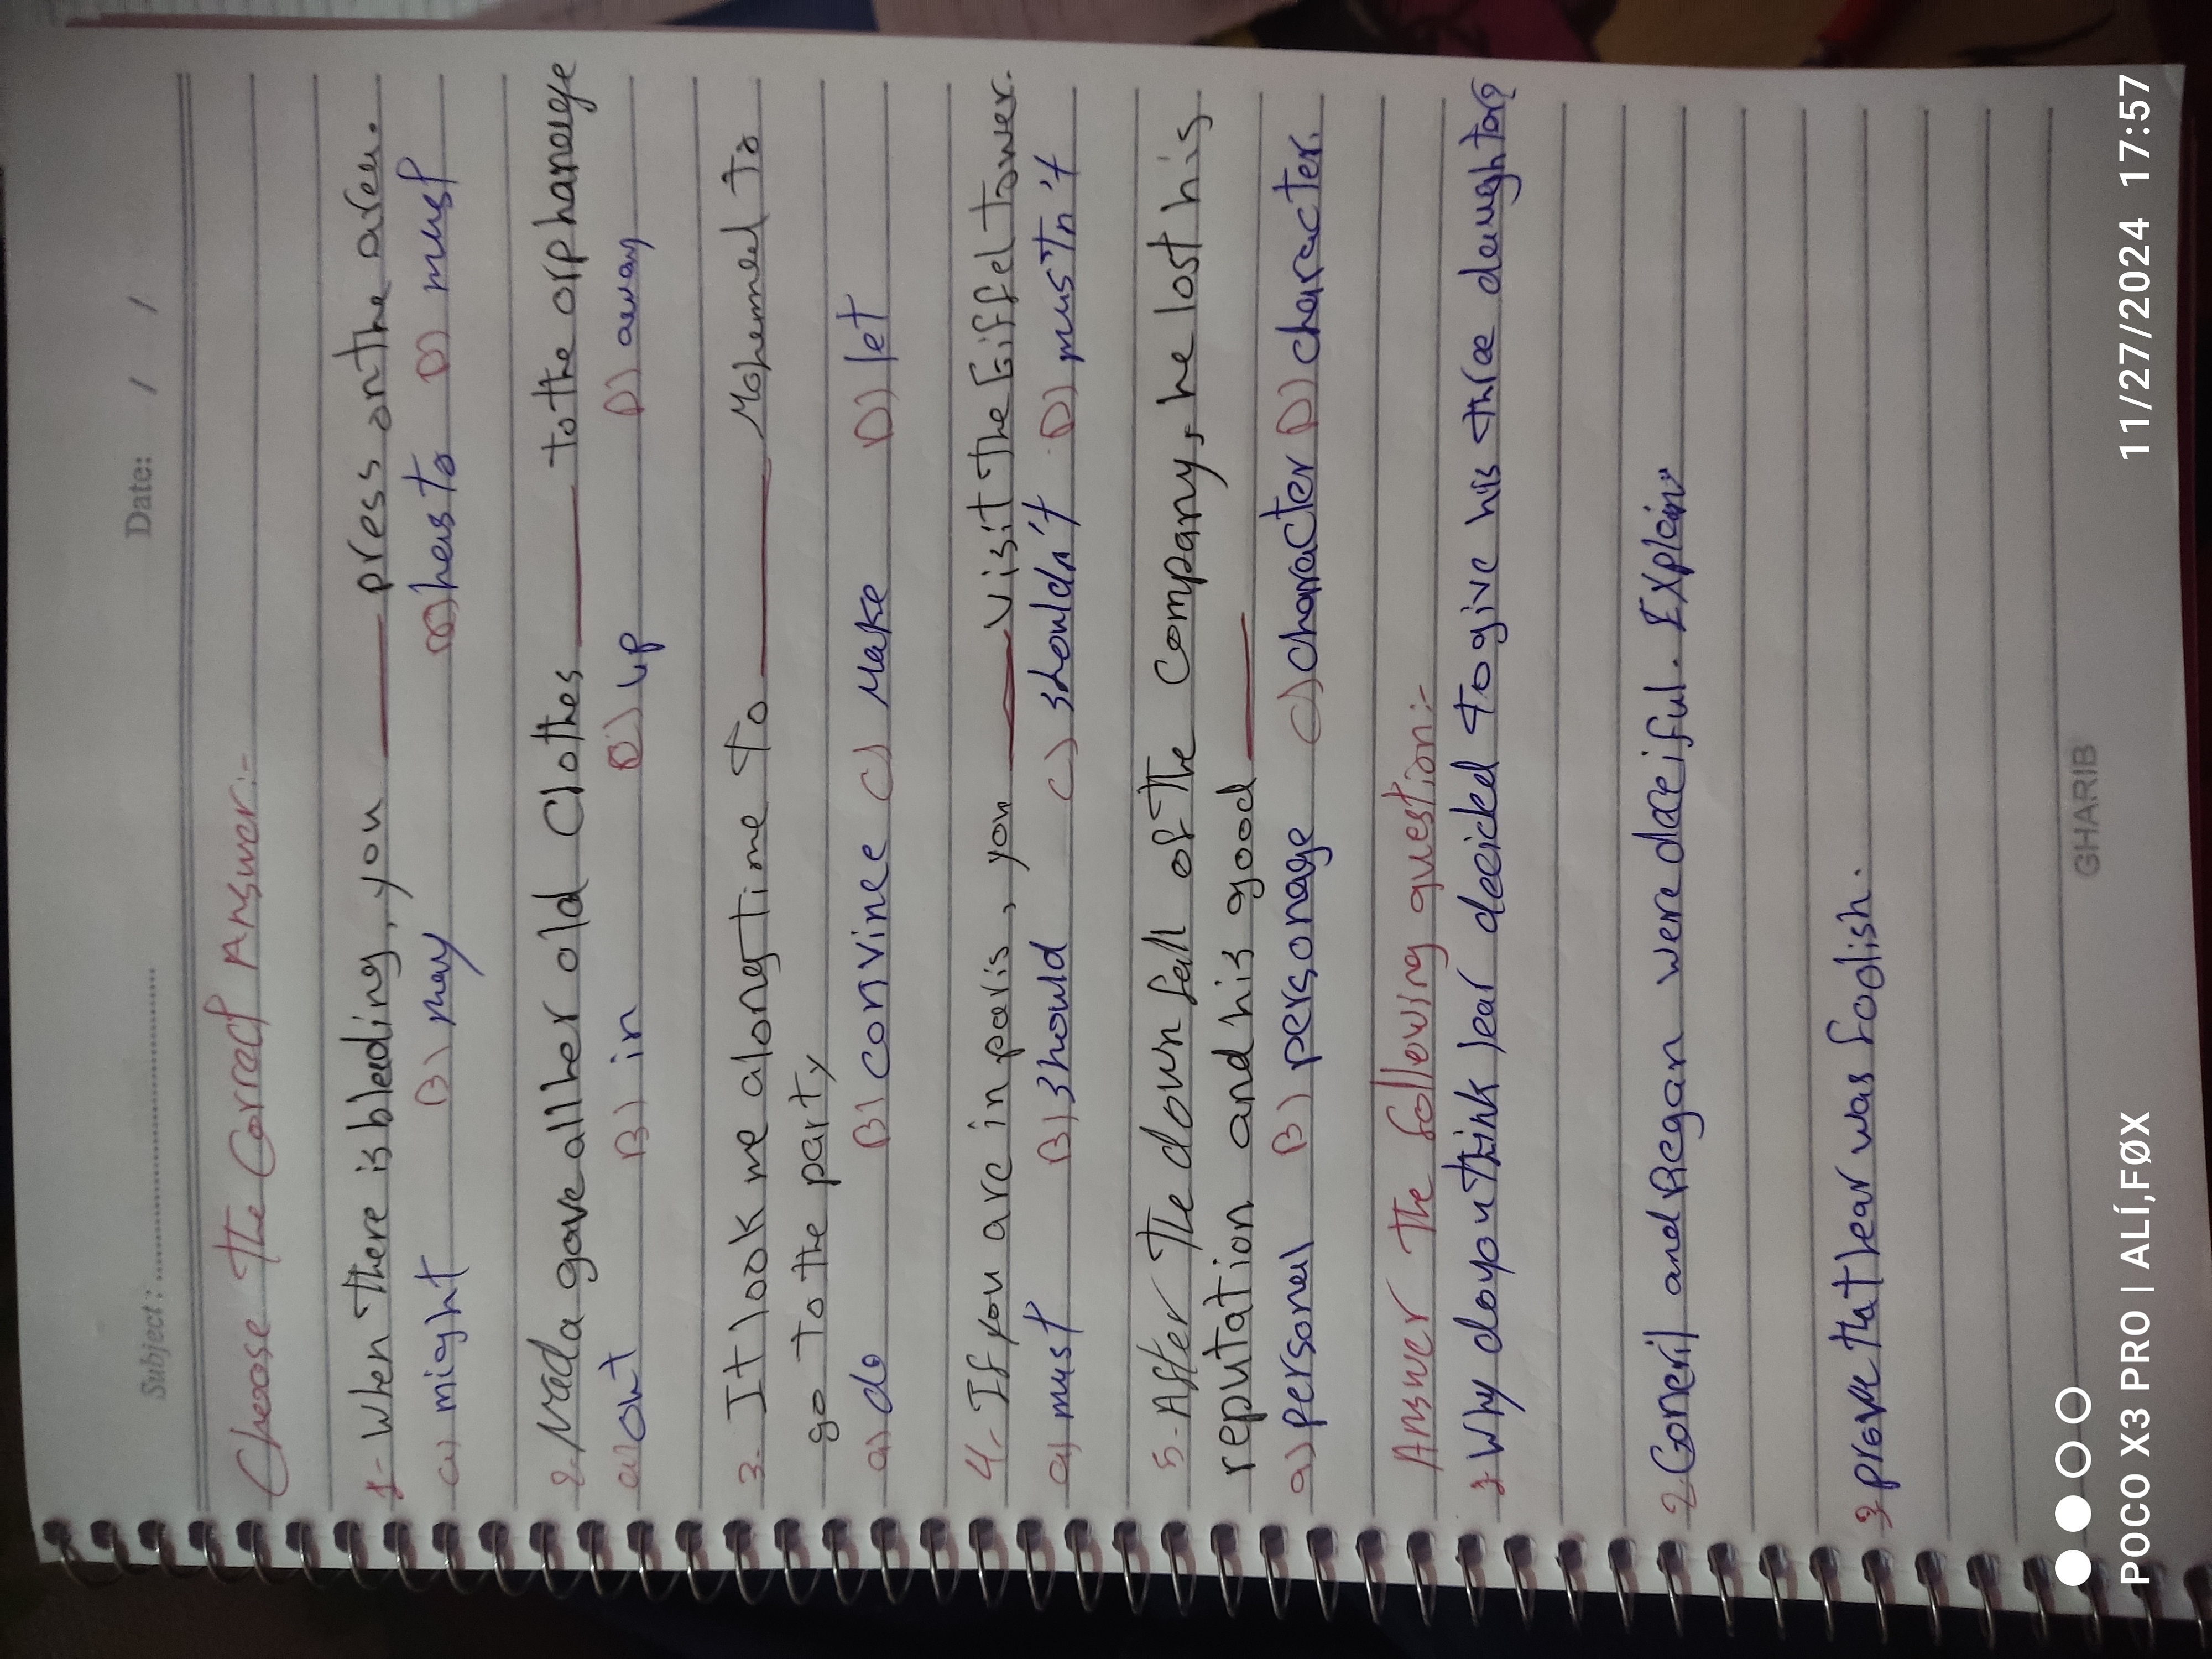 Subject: ........................................ Date: / /
Choose The Correct Answer:-
1- When there is bleeding, you ____ press on the area.
a) might B) may C) has to D) must
2. Nada gave all her old Clothes ____ to the orphanage
a) out B) in C) up D) away
3- It look me along time to ____ Mohemmed to
go to the party
a) do B) convince C) Make D) let
4- If you are in paris, you ____ visit the Eiffel tower.
a) must B) should C) shouldn't D) mustn't
5- After the down fall of the Company, he lost his
reputation and his good ____
a) personal B) personage C) character D) character.
Answer the following question:-
1 Why do you think lear decided to give his three daughters?
2 Goneril and Regan were deceiful. Explain
3 prove that lear was foolish.
GHARIB
POCO X3 PRO | ALÍ,FØX 11/27/2024 17:57